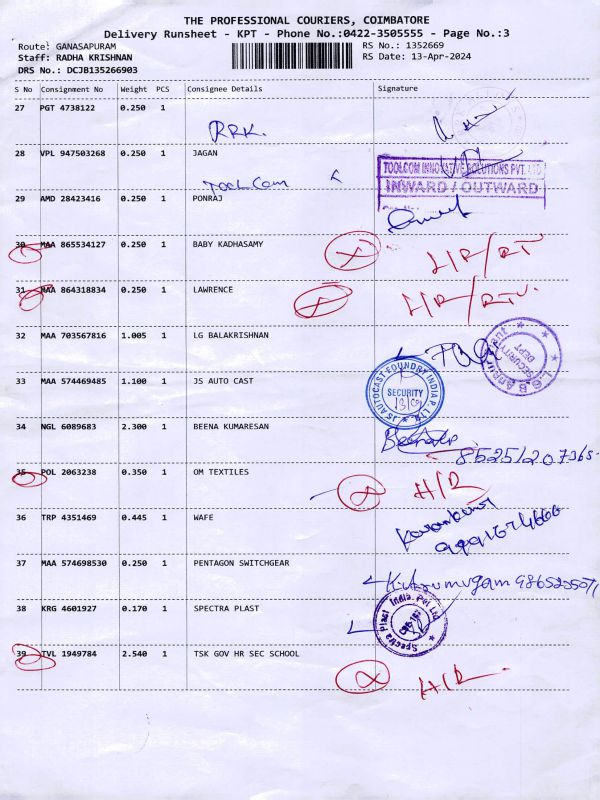 THE PROFESSIONAL COURIERS, COIMBATORE
Delivery Runsheet - KPT - Phone No.:0422-3505555 - Page No.:3
Route: GANASAPURAM RS No.: 1352669
Staff: RADHA KRISHNAN RS Date: 13-Apr-2024
DRS No.: DCJB135266903
S No Consignment No Weight PCS Consignee Details Signature
27 PGT 4738122 0.250 1
RRK.
28 VPL 947503268 0.250 1 JAGAN
TOOLCOM INNOVATIVE SOLUTIONS PVT. LTD
INWARD / OUTWARD
ToolCom
29 AMD 28423416 0.250 1 PONRAJ
30 MAA 865534127 0.250 1 BABY KADHASAMY
31 MAA 864318834 0.250 1 LAWRENCE
32 MAA 703567816 1.005 1 LG BALAKRISHNAN
SECURITY DEPT
33 MAA 574469485 1.100 1 JS AUTO CAST
JS AUTOCAST FOUNDRY INDIA P. LTD.
SECURITY
34 NGL 6089683 2.300 1 BEENA KUMARESAN
35 POL 2063238 0.350 1 OM TEXTILES
H/R
36 TRP 4351469 0.445 1 WAFE
37 MAA 574698530 0.250 1 PENTAGON SWITCHGEAR
38 KRG 4601927 0.170 1 SPECTRA PLAST
Spectra Plast India Pvt Ltd
39 TVL 1949784 2.540 1 TSK GOV HR SEC SCHOOL
H/R